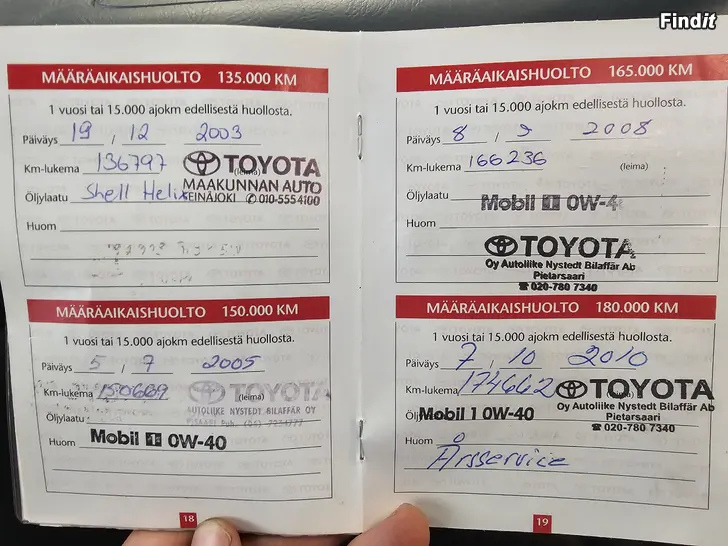 Findit
MÄÄRÄAIKAISHUOLTO 135.000 KM
1 vuosi tai 15.000 ajokm edellisestä huollosta.
Päiväys 19 / 12 2003
Km-lukema 136797
(leima)
TOYOTA
Öljylaatu Shell Helix
MAAKUNNAN AUTO
SEINÄJOKI ✆ 010-555 4100
Huom
MÄÄRÄAIKAISHUOLTO 150.000 KM
1 vuosi tai 15.000 ajokm edellisestä huollosta.
Päiväys 5 / 7 2005
Km-lukema 150669
(leima)
TOYOTA
AUTOLIIKE NYSTEDT BILAFFÄR OY
Öljylaatu
Huom Mobil 1 0W-40
18
MÄÄRÄAIKAISHUOLTO 165.000 KM
1 vuosi tai 15.000 ajokm edellisestä huollosta.
Päiväys 8 / 9 2008
Km-lukema 166236
(leima)
Öljylaatu Mobil 1 0W-4
Huom
TOYOTA
Oy Autoliike Nystedt Bilaffär Ab
Pietarsaari
☎ 020-780 7340
MÄÄRÄAIKAISHUOLTO 180.000 KM
1 vuosi tai 15.000 ajokm edellisestä huollosta.
Päiväys 7 / 10 2010
Km-lukema 174662
(leima)
TOYOTA
Oy Autoliike Nystedt Bilaffär Ab
Pietarsaari
☎ 020-780 7340
Mobil 1 0W-40
Huom Årsservice
19